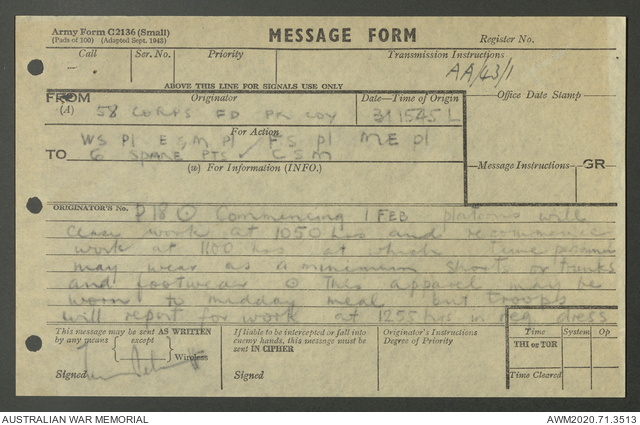 Army Form C2136 (Small)
(Pads of 100) (Adapted Sept. 1943)
MESSAGE FORM
Register No.
Call
Ser. No.
Priority
Transmission Instructions
AA/43/1
ABOVE THIS LINE FOR SIGNALS USE ONLY
FROM
(A)
Originator
Date—Time of Origin
Office Date Stamp
58 CORPS FD PK COY
311545 L
For Action
TO
WS Pl E & M pl FS pl ME pl
& SPARE PTS CSM
(w) For Information (INFO.)
Message Instructions
GR
ORIGINATOR'S No.
P18 Commencing 1 FEB platoons will
cease work at 1050 hrs and recommence
work at 1100 hrs at which time
may wear as a minimum short or trunks
and footwear This apparel may be
worn to midday meal but troops
will report for work at 1255 hrs in dress
This message may be sent AS WRITTEN
by any means except
Wireless
Signed
If liable to be intercepted or fall into
enemy hands, this message must be
sent IN CIPHER
Signed
Originator's Instructions
Degree of Priority
Time
System
Op
THI or TOR
Time Cleared
AUSTRALIAN WAR MEMORIAL
AWM2020.71.3513